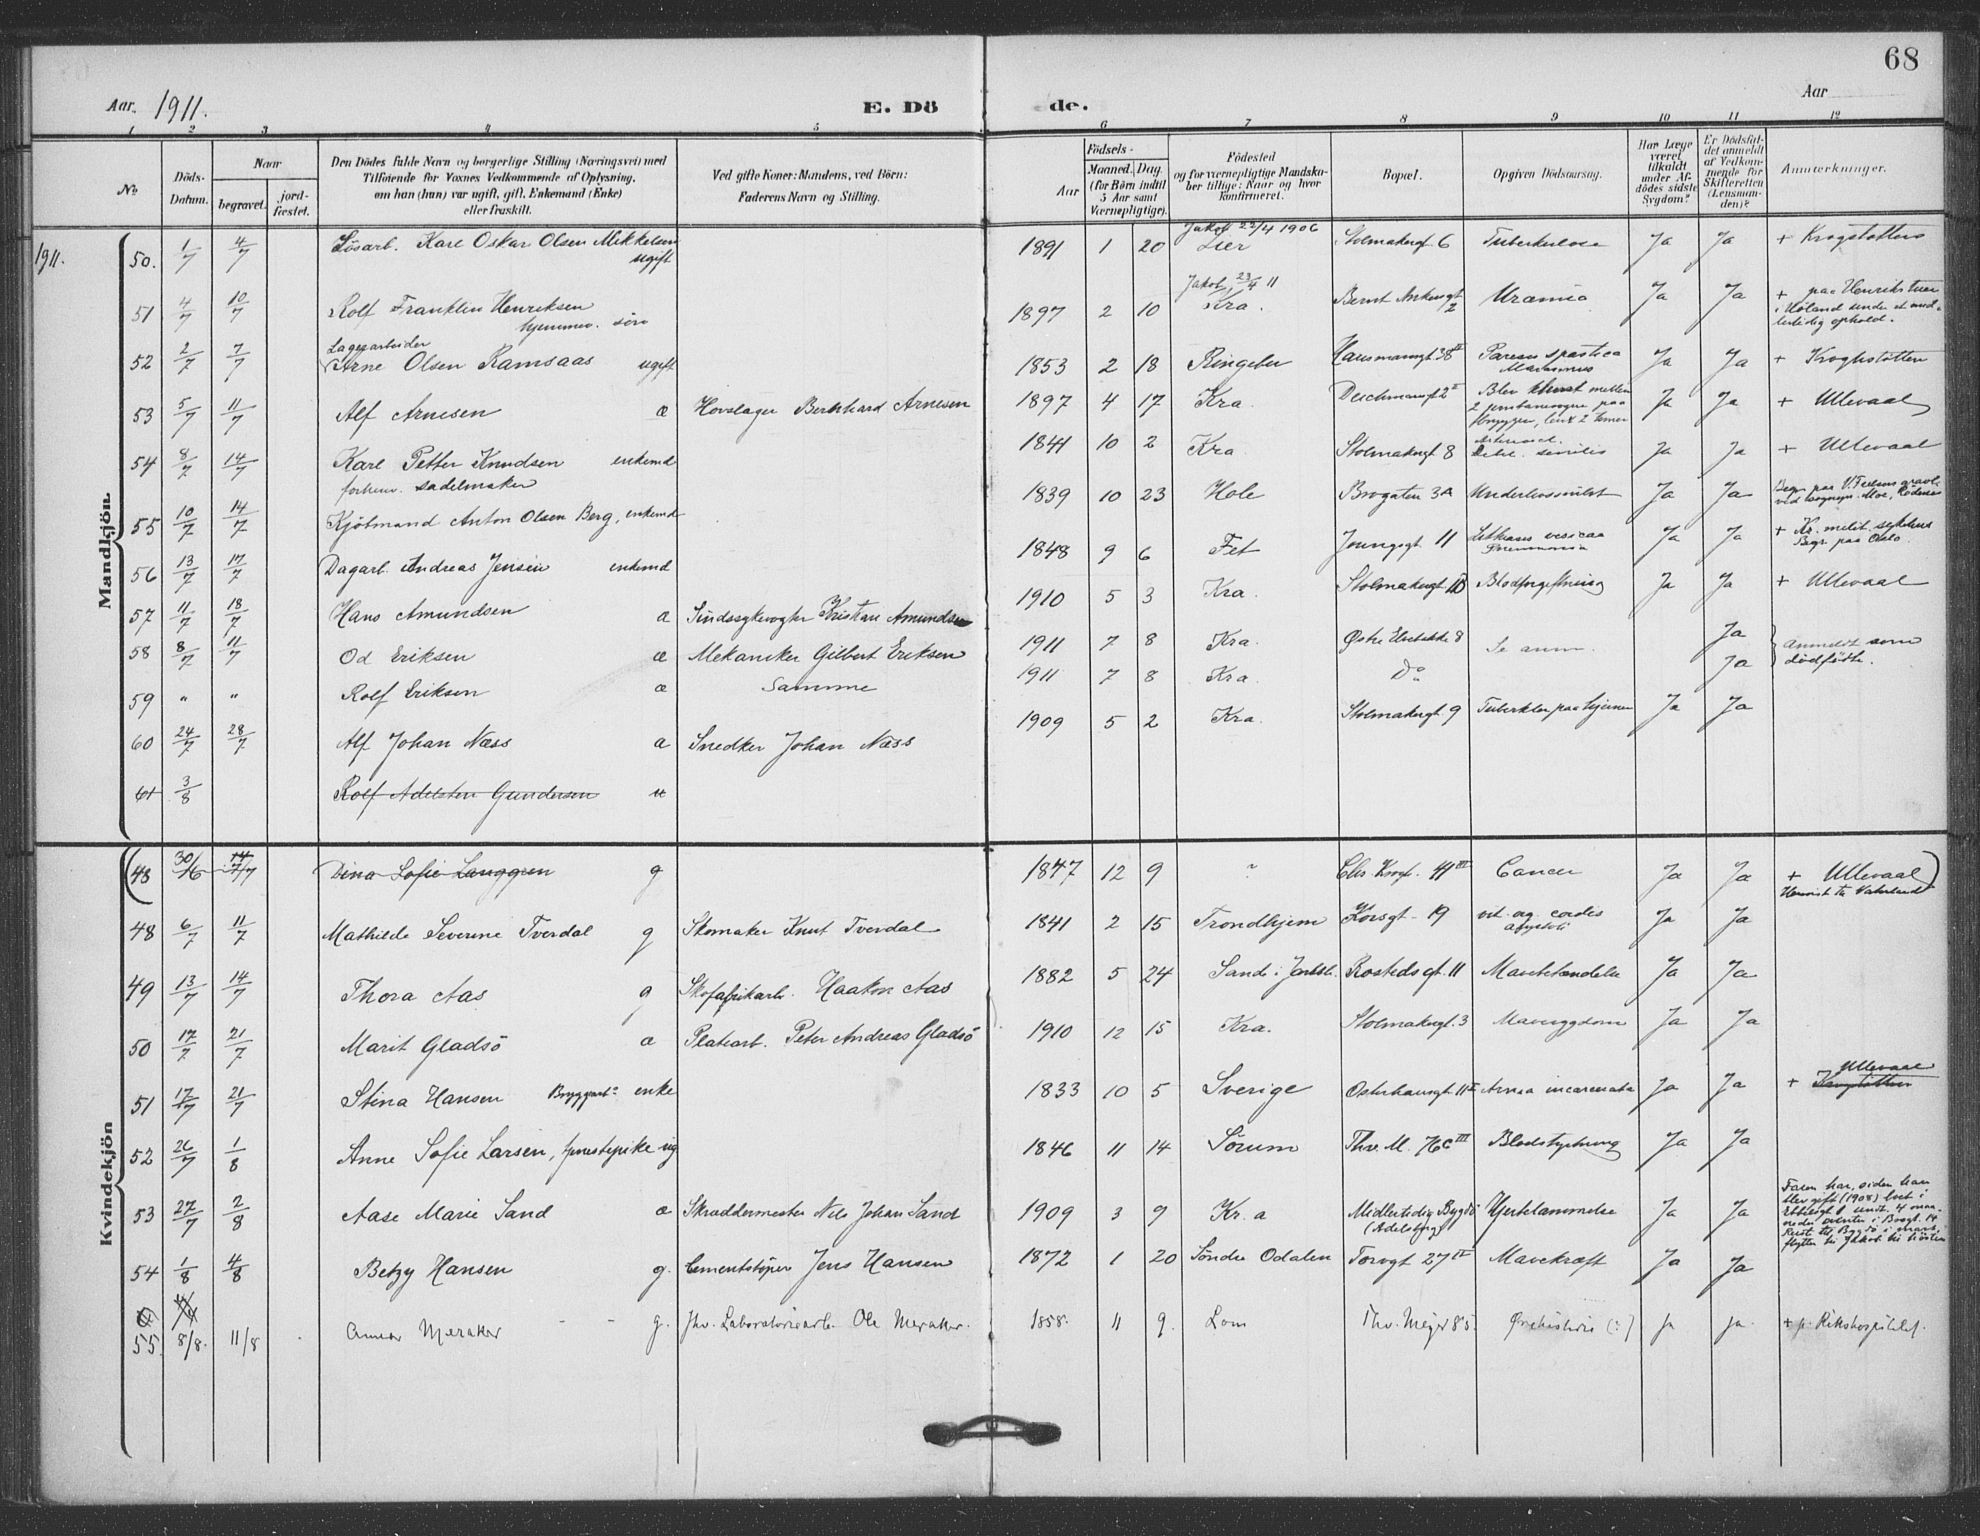 68
Aar. 1911.
E. Dö de.
Aar
1 2 3 4 5 6 7 8 9 10 11 12
No
Döds-Datum.
Naar
begravet.
jord-fæstet.
Den Dödes fulde Navn og borgerlige Stilling (Næringsvei) med
Tilföiende for Voxnes Vedkommende af Oplysning,
om han (hun) var ugift, gift, Enkemand (Enke)
eller fraskilt.
Ved gifte Koner: Mandens, ved Börn:
Faderens Navn og Stilling.
Födsels-
Aar
Maaned. Dag.
(for Börn indtil
5 Aar samt
Værnepligtige).
Födested
og for værnepligtige Mandska-
ber tillige: Naar og hvor
konfirmeret.
Bopæl.
Opgiven Dödsaarsag.
Har Læge
været
tilkaldt
under Af-
dödes sidste
Sygdom?
Er Dödsfal-
det anmeldt
af Vedkom-
mende for
Skifteretten
(Lensman-
den)?
Anmærkninger.
Mandkjön
1911.
50. 1/7 4/7 Karl Oskar Olsen Mikkelsen ugift 1891 1 20 Jakob 22/4 1906 Lier Stolmakergt 6 Tuberkulose Ja Ja + Krogstøtten
51 4/7 10/7 Rolf Franklin Henriksen hjemmev. søn 1897 2 10 Jakob 23/4 11 Kra. Bernt Ankersgt 2 Uræmia Ja Ja + paa Henrikstuen
i Høland under et mid-
lertidig ophold.
52 2/7 7/7 Lagerarbeider
Arne Olsen Ramsaas ugift 1853 2 18 Ringebu Hausmannsgt 38 II Parese spastica
Marasmus Ja Ja + Kroghstøtten
53 5/7 11/7 Alf Arnesen æ Hovslager Bernhard Arnesen 1897 4 17 Kra. Deichmansgt 2 II Blev klemt mellem
2 jernbanevogne paa
bryggen, Ja Ja + Ullevaal
54 8/7 14/7 Karl Petter Knudsen enkemd
forhenv. sadelmaker 1841 10 2 Kra. Stolmakergt 8 senilis Ja Ja + Ullevaal
55 10/7 14/7 Kjøbmand Anton Olsen Berg, enkemd 1839 10 23 Hole Brogaten 3A Underlivssvulst Ja Ja Begr. paa V.
56 13/7 17/7 Dagarb. Andreas Jensen enkemd 1848 9 6 Fet Youngsgt 11 vesicae
Pneumonia Ja Ja + Kr. milit. sykehus
Begr. paa Oslo.
57 11/7 18/7 Hans Amundsen æ Sindssykevogter Kristian Amundsen 1910 5 3 Kra. Stolmakergt. Blodforgiftning Ja Ja + Ullevaal
58 8/7 11/7 Od Eriksen æ Mekaniker Gilbert Eriksen 1911 7 8 Kra. Østre Elvebakke 8 Se anm. Ja Anmeldt som
dødfødte.
59 " " Rolf Eriksen æ Samme 1911 7 8 Kra. Do Ja
60 24/7 28/7 Alf Johan Næss æ Snedker Johan Næss 1909 5 2 Kra. Stolmakergt 9 Tuberkler paa hjernen Ja Ja
61 3/8 Rolf Adelsten Gundersen u
Kvindekjön
(48 30/6 7/7 Dina Sofie Langgren g 1847 12 9 " Chr. Krogt. 41 III Cancer Ja Ja + Ullevaal)
48 6/7 11/7 Mathilde Severine Tverdal g Skomaker Knut Tverdal 1841 2 15 Trondhjem Korsgt. 19 vit. og. cordis Ja Ja
49 13/7 14/7 Thora Aas g Skofabrikarb. Haakon Aas 1882 5 24 Sande i Jarlsb. Rostedsgt. 11 Mavebetændelse Ja Ja
50 17/7 21/7 Marit Gladsö æ Platearb. Peter Andreas Gladsö 1910 12 15 Kra. Stolmakergt. 3 Mavesygdom Ja Ja
51 17/7 21/7 Stina Hansen Bryggearb. enke 1833 10 5 Sverige Osterhausgt 11 II incarcerata Ja Ja + Ullevaal
52 26/7 1/8 Anne Sofie Larsen, tjenestepike ug 1846 11 14 Sørum Thv. M. 76c III Blodstyrtning Ja Ja
53 27/7 2/8 Aase Marie Sand æ Skræddermester Nils Johan Sand 1909 3 9 Kr. a Midlertidig Bygdö
(Adelsberg) Hjertelammelse Ja Ja Faren har, siden han
blev gift (1908) boet i
54 1/8 4/8 Betzy Hansen g. Cementstøper Jens Hansen 1872 1 20 Søndre Odalen Torvgt 27 IV Mavekræft Ja Ja
55. 8/8. 11/8 Anna Meraker g. Fhv. Laboratoriearb. Ole Meraker. 1858. 11 9. Lom Thv. Meyer 85 (?) Ja ja. + p. Rikshospitalet.